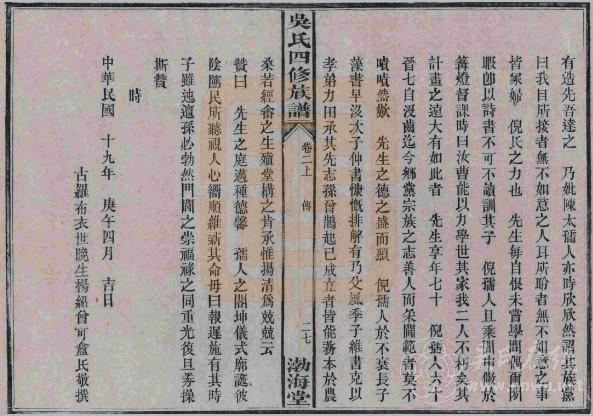 有造先吾達之 乃妣陳太孺人亦時欣欣然認其族黨
曰我目所接者無不如意之人耳所聆者無不如意之事
皆冢婦 倪氏之力也 先生每自恨未嘗學問偶爾閒
暇卽以詩書不可不讀訓其子 倪孺人且乘間中饋於
篝燈督課時曰汝曹能以力學世其家我二人不朽矣其
計畫之遠大有如此者 先生享年七十 倪孺人六十
晉七自沒齒迄今鄉黨宗族之志善人而采閫範者莫不
嘖嘖然歎 先生之德之盛而頌 倪孺人於不衰長子
藻書早沒次子仲書慷慨排解有乃父風季子維書克以
孝弟力田承其先志孫曾鵲起已成立者皆能務本於農
桑若經畬之生殖堂構之肯承惟揚清爲兢兢云
贊曰 先生之庭邁種德馨 孺人之閣坤儀式廓誕彼
陰隲民所聽視人心嚮順維新其命毋曰報遲施有其時
子雖迍邅孫必勃然門閭之崇福祿之同重光復旦券操
斯贊
時
中華民國 十九年 庚午四月 吉日
古羅布衣世晚生楊紹曾可盦氏敬撰
吳氏四修族譜
卷二上 傳
二七
渤海堂